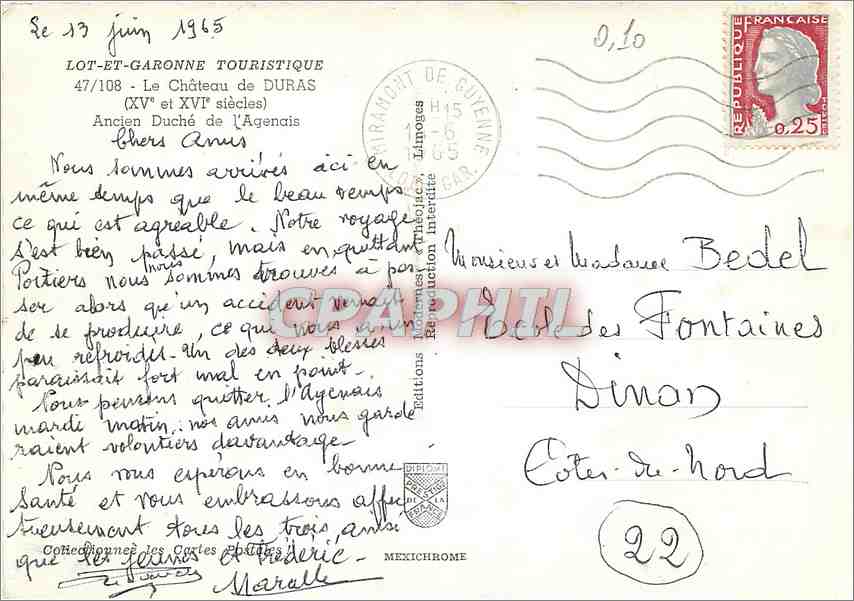 Le 13 juin 1965
LOT-ET-GARONNE TOURISTIQUE
47/108 - Le Château de DURAS
(XVe et XVIe siècles)
Ancien Duché de l'Agenais
Chers Amis
Nous sommes arrivés ici en
même temps que le beau temps
ce qui est agréable. Notre voyage
s'est bien passé, mais en quittant
Poitiers nous nous sommes trouvés à pas
ser alors qu'un accident venait
de se produire, ce qui nous a un
peu refroidis - Un des deux blessés
paraissait fort mal en point -
Nous pensons quitter l'Agenais
mardi matin; nos amis nous garde
raient volontiers davantage -
Nous vous espérons en bonne
santé et vous embrassons affec
tueusement tous les trois, ainsi
que les jeunes et Frédéric -
Collectionnez les Cartes Postales !
Editions Modernes « Théojac », Limoges
Reproduction Interdite
DIPLOME
PRESTIGE
DE LA
FRANCE
MEXICHROME
MIRAMONT DE GUYENNE
0,10
REPUBLIQUE FRANCAISE
0,25
Monsieur et Madame Bedel
Ecole des Fontaines
Dinan
Côtes-du-Nord
22
CPAPHIL